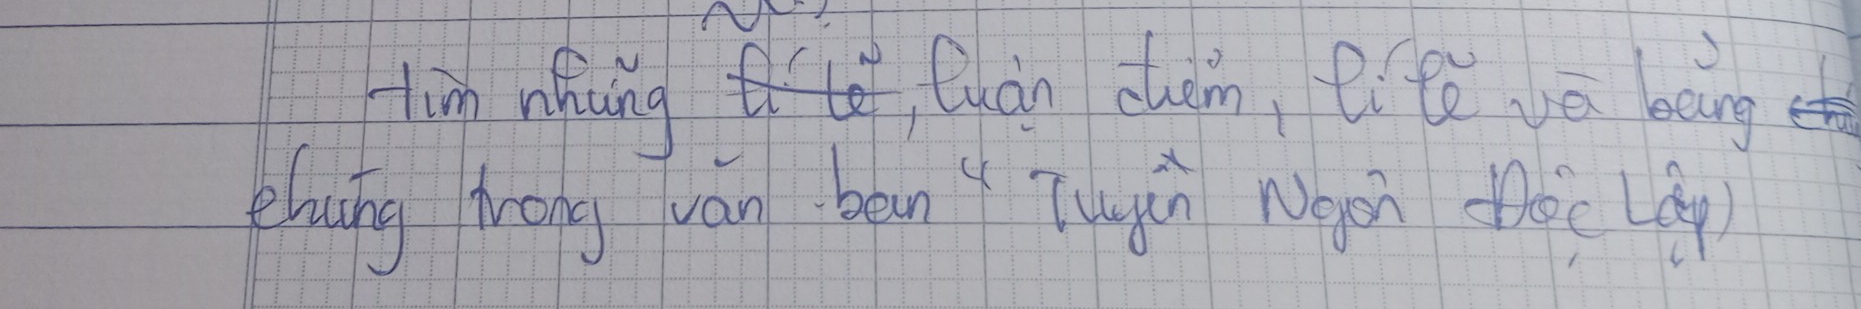 tìm những lí lẽ, luận điểm, lí lẽ và bằng
chứng trong văn bản "Tuyên Ngôn Độc Lập)